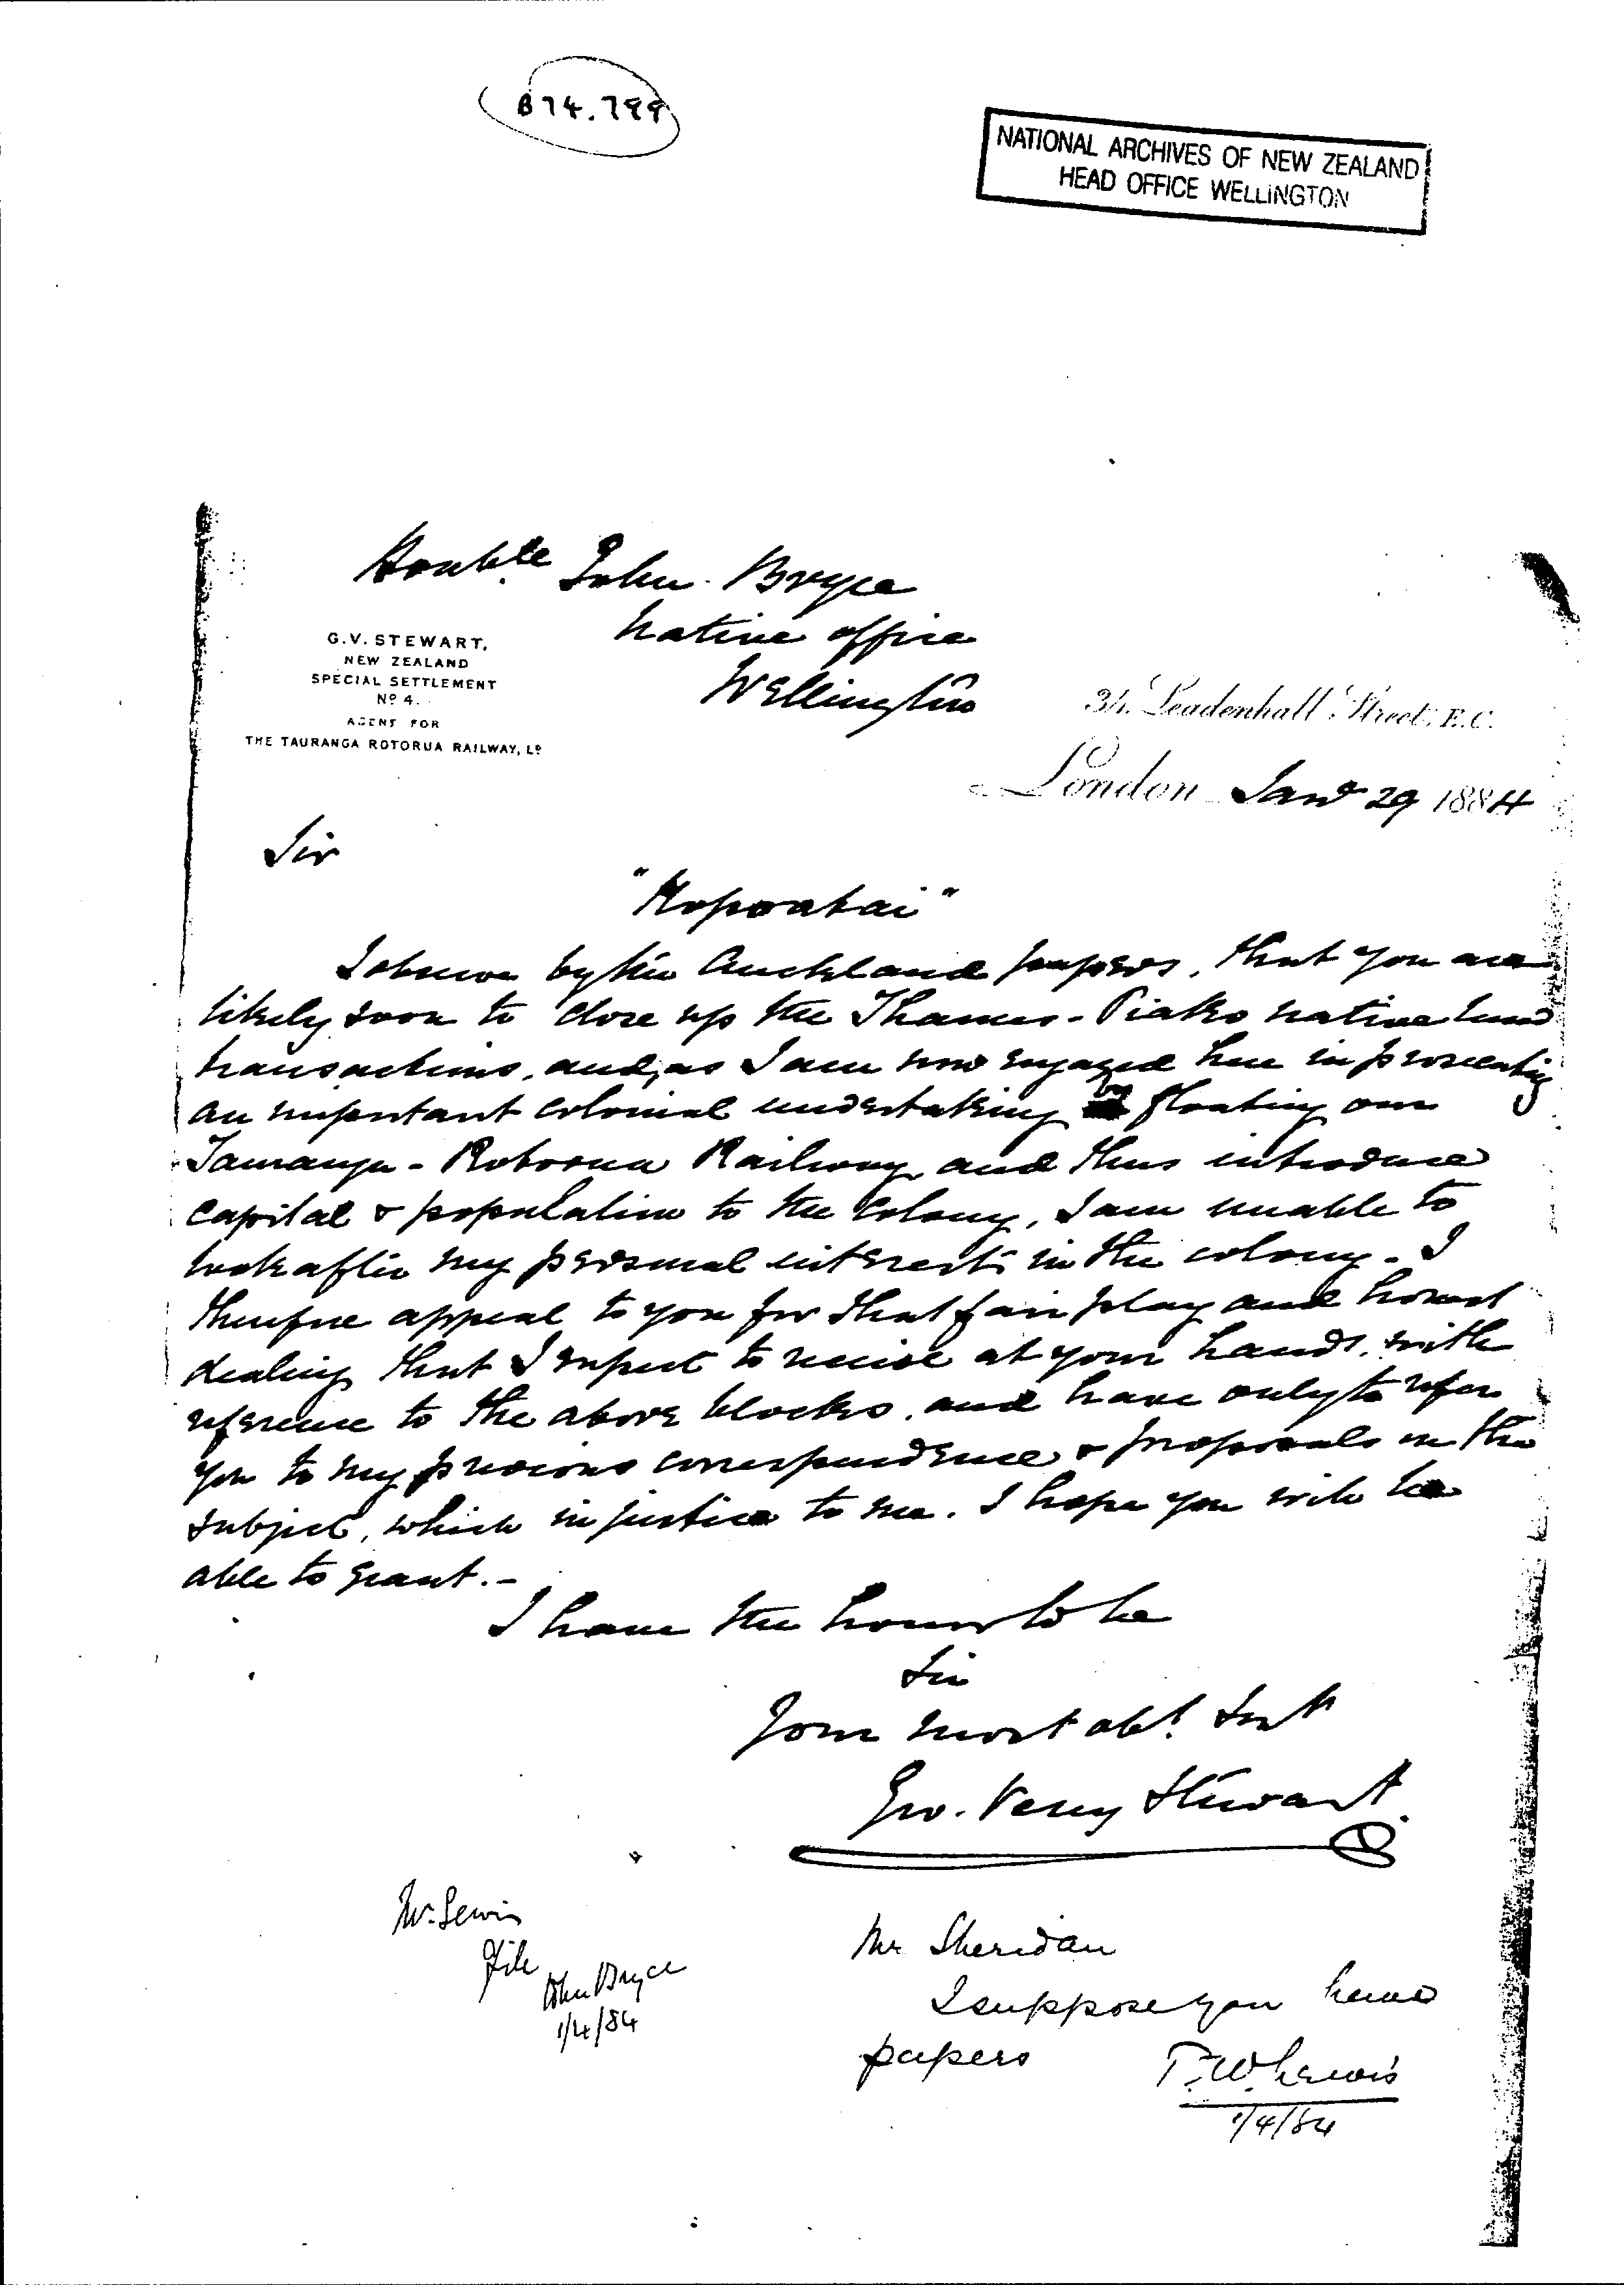 B74.799
NATIONAL ARCHIVES OF NEW ZEALAND
HEAD OFFICE WELLINGTON
Honble John Bryce
Native Office
Wellington
G.V. STEWART,
NEW ZEALAND
SPECIAL SETTLEMENT
No 4.
AGENT FOR
THE TAURANGA ROTORUA RAILWAY, LD
34. Leadenhall Street, E.C.
London Jany 29 1884
Sir
"Kopoatai"
I observe by the Auckland papers, that you are
likely soon to close up the Thames-Piako native land
transactions, and, as I am now engaged here in prosecuting
an important colonial undertaking by floating our
Tauranga-Rotorua Railway and thus introduce
capital & population to the Colony, I am unable to
look after my personal interests in the colony. I
therefore appeal to you for that fair play and honest
dealing that I expect to receive at your hands, with
reference to the above blocks, and have only to refer
you to my previous correspondence & proposals on the
subject, which in justice to me, I hope you will be
able to grant.-
I have the honor to be
Sir
Your most obt. Servt
Geo. Vesey Stewart.
Mr. Lewis
File
John Bryce
1/4/84
Mr Sheridan
I suppose you have
papers
T.W. Lewis
1/4/84